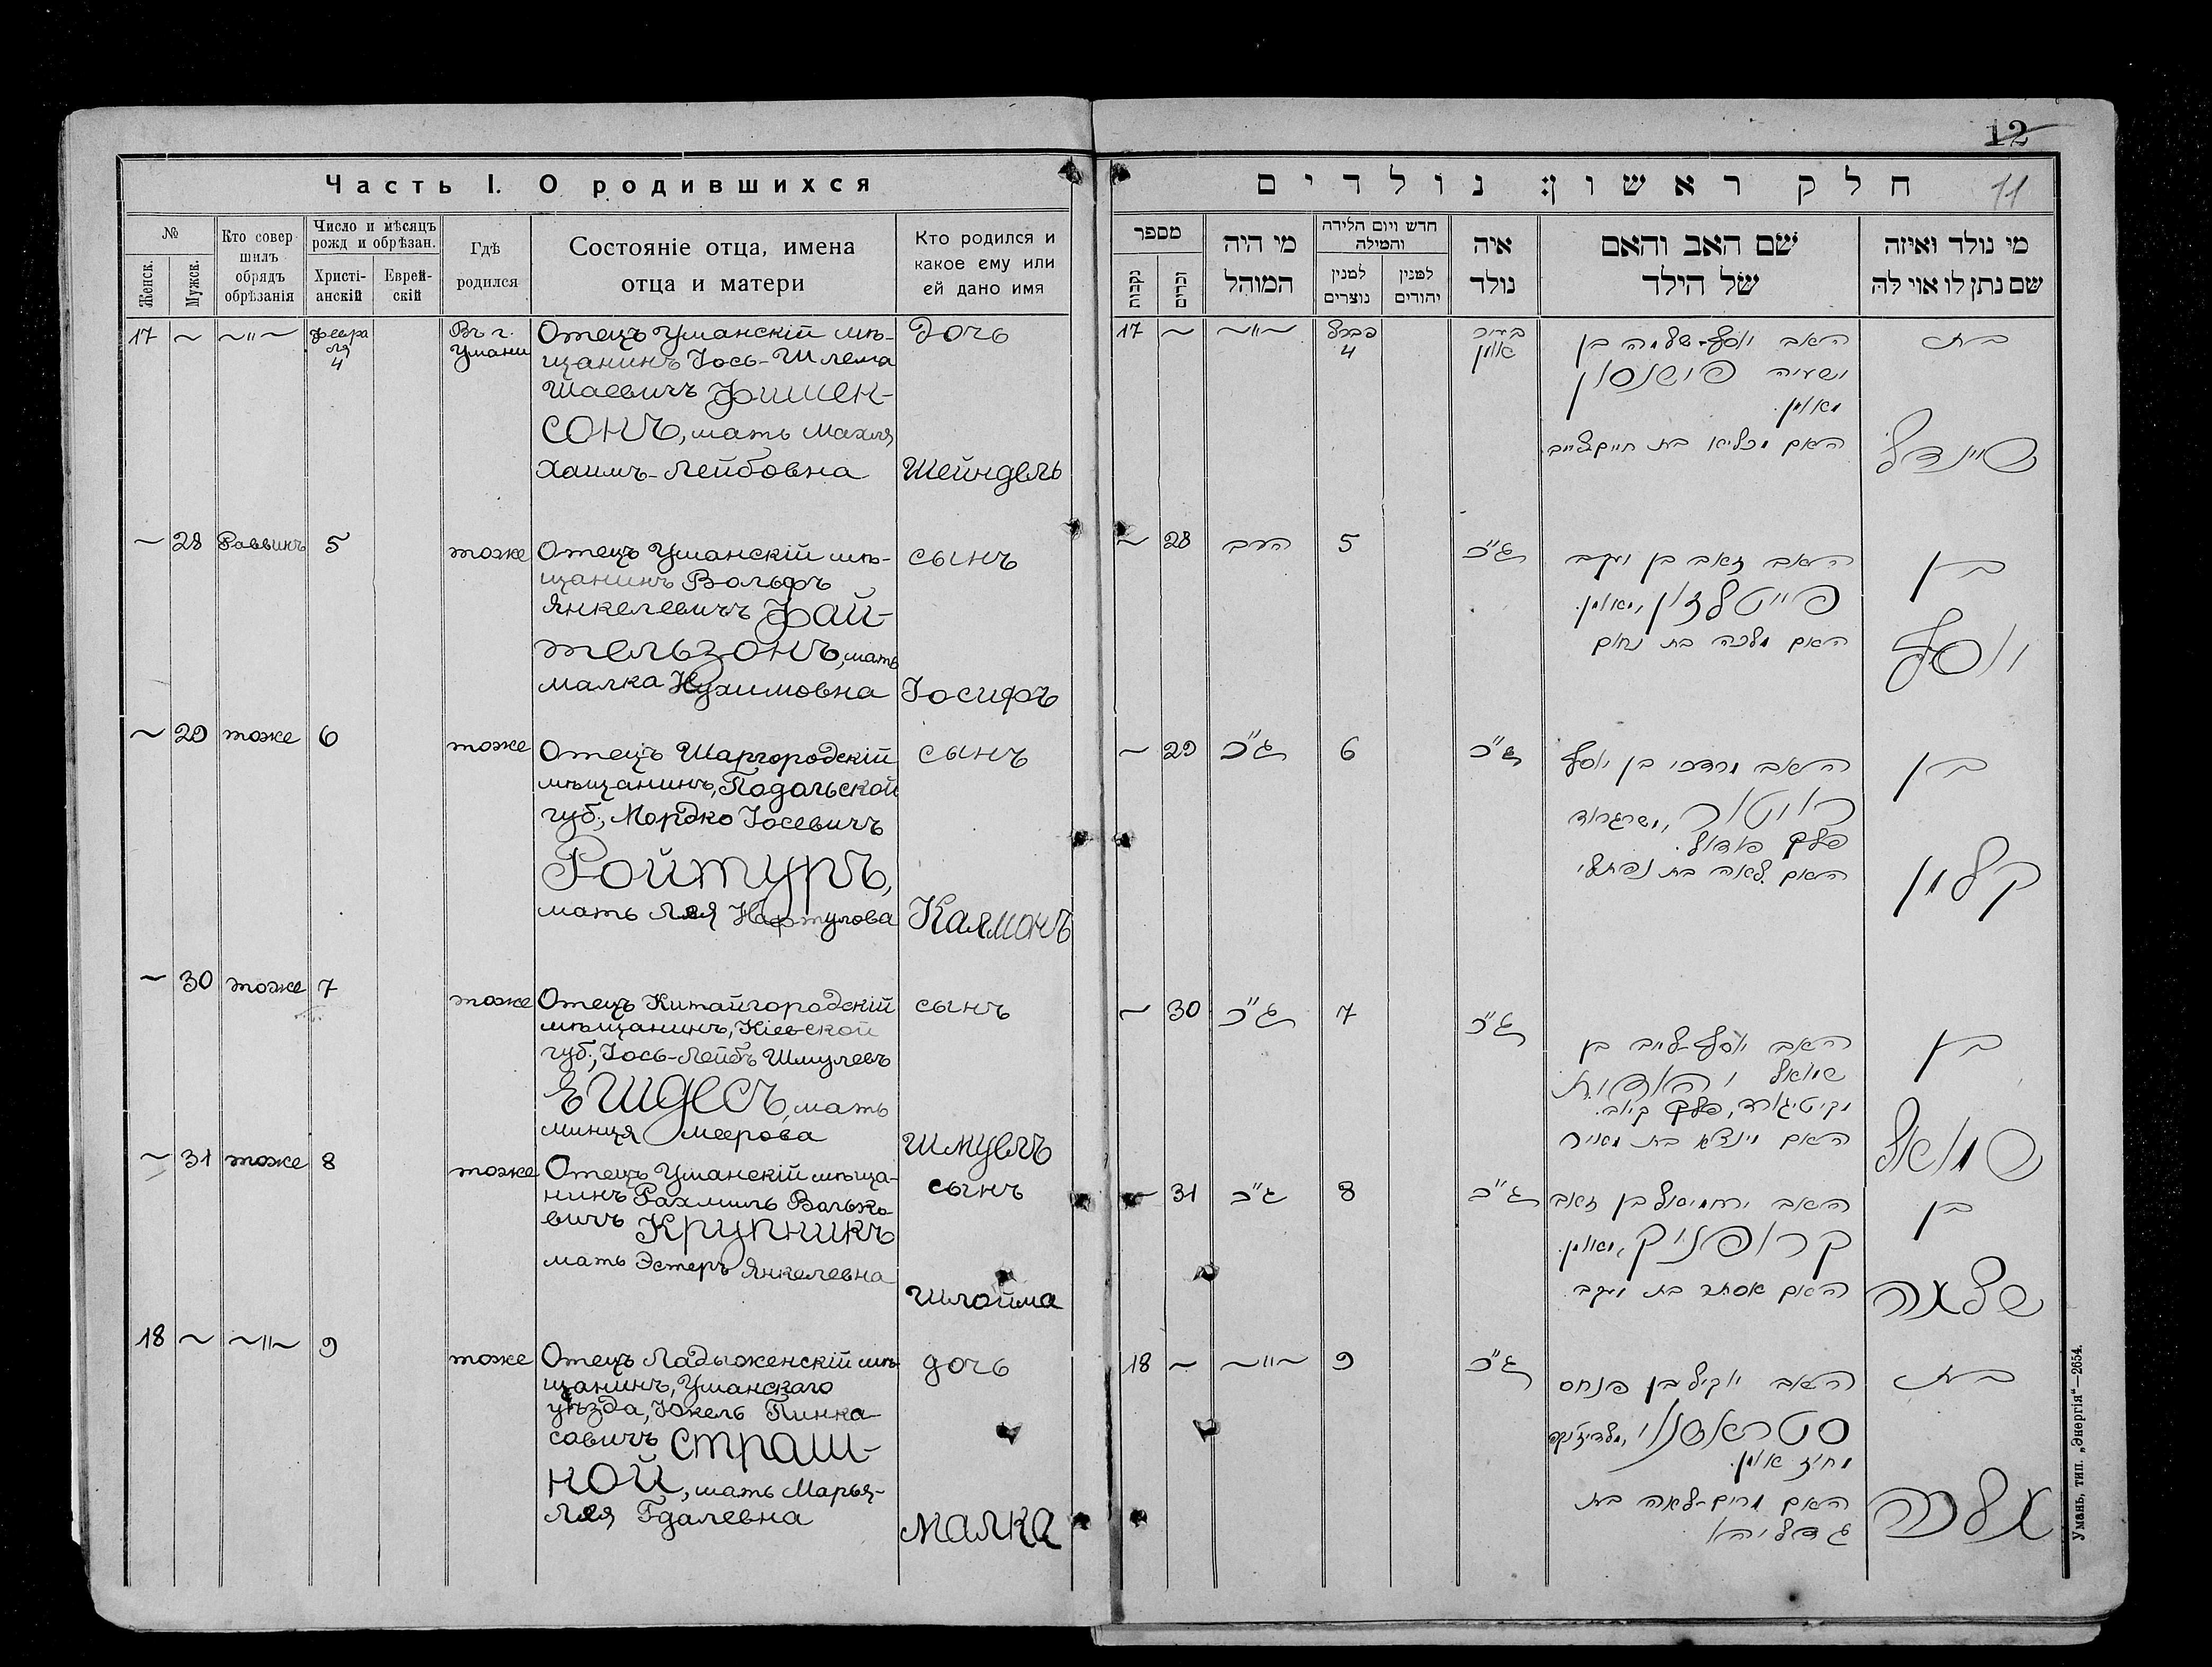 12
11
Часть I. О родившихся
№
Женск.
Мужск.
Кто совер
шилъ
обрядъ
обрѣзанія
Число и мѣсяцъ
рожд и обрѣзан.
Христі-
анскій
Еврей-
скій
Гдѣ
родился
Состояніе отца, имена
отца и матери
Кто родился и
какое ему или
ей дано имя
17 ~ ~"~
Февра
ля
4
Въ г.
Умани
Отецъ Уманскій мѣ-
щанинъ Іось-Шлема
Шаевичъ Фишен-
сонъ, мать Махля
Хаимъ-Лейбовна
дочь
Шейндель
~ 28 Раввинъ 5
тоже
Отецъ Уманскій мѣ-
щанинъ Вольфъ
Янкелевичъ Фай-
тельзонъ, мать
Малка Нухимовна
сынъ
Іосифъ
~ 29 тоже 6
тоже
Отецъ Шаргородскій
мѣщанинъ, Подольской
губ., Мордко Іосевичъ
Ройтуръ,
мать Лея Нафтулова
сынъ
Калмонъ
~ 30 тоже 7
тоже
Отецъ Китайгородскій
мѣщанинъ, Кіевской
губ., Іось-Лейбъ Шмулевъ
Ешдесъ, мать
Минця Меерова
сынъ
Шмуель
~ 31 тоже 8
тоже
Отецъ Уманскій мѣща-
нинъ Рахмиль Волько-
вичъ Крупникъ
мать Эстеръ Янкелевна
сынъ
Шлойма
18 ~ ~"~ 9
тоже
Отецъ Ладыженскій мѣ-
щанинъ, Уманскаго
уѣзда, Юкель Пинка-
совичъ Страш-
ной, мать Марья-
Лея Гдалевна
дочь
Малка
חלק ראשון: נולדים
מספר
נקבות
זכרים
מי היה
המוהל
חדש ויום הלידה
והמילה
למנין
נוצרים
למנין
יהודים
איה
נולד
שם האב והאם
של הילד
מי נולד ואיזה
שם נתן לו אוי לה
17 ~ ~"~
פברל
4
בעיר
אומן
האב יוסף-שלמה בן
ישעיה פישנסון
מאומן.
האם מכליא בת חיים-לייב
בת
שיינדל
~ 28 הרב 5
ג"כ
האב זאב בן יעקב
פייטלזון, מאומן.
האם מלכה בת נחום
בן
יוסף
~ 29 ג"כ 6
ג"כ
האב מרדכי בן יוסף
רויטור, משרגרוד
פלך פודול.
האם לאה בת נפתלי
בן
קלמן
~ 30 ג"כ 7
ג"כ
האב יוסף-לייב בן
שמואל
פלך קיוב.
האם מינציא בת מאיר
בן
שמואל
~ 31 ג"כ 8
ג"כ
האב ירחמיאל בן זאב
קרופניק, מאומן.
האם אסתר בת יעקב
בן
שלמה
18 ~ ~"~ 9
ג"כ
האב יוקיל בן פנחס
סטראשנוי,
מחוז אומן.
האם מרים-לאה בת
גדליהו
בת
מלכה
Умань, тип. „Энергія“—2654.